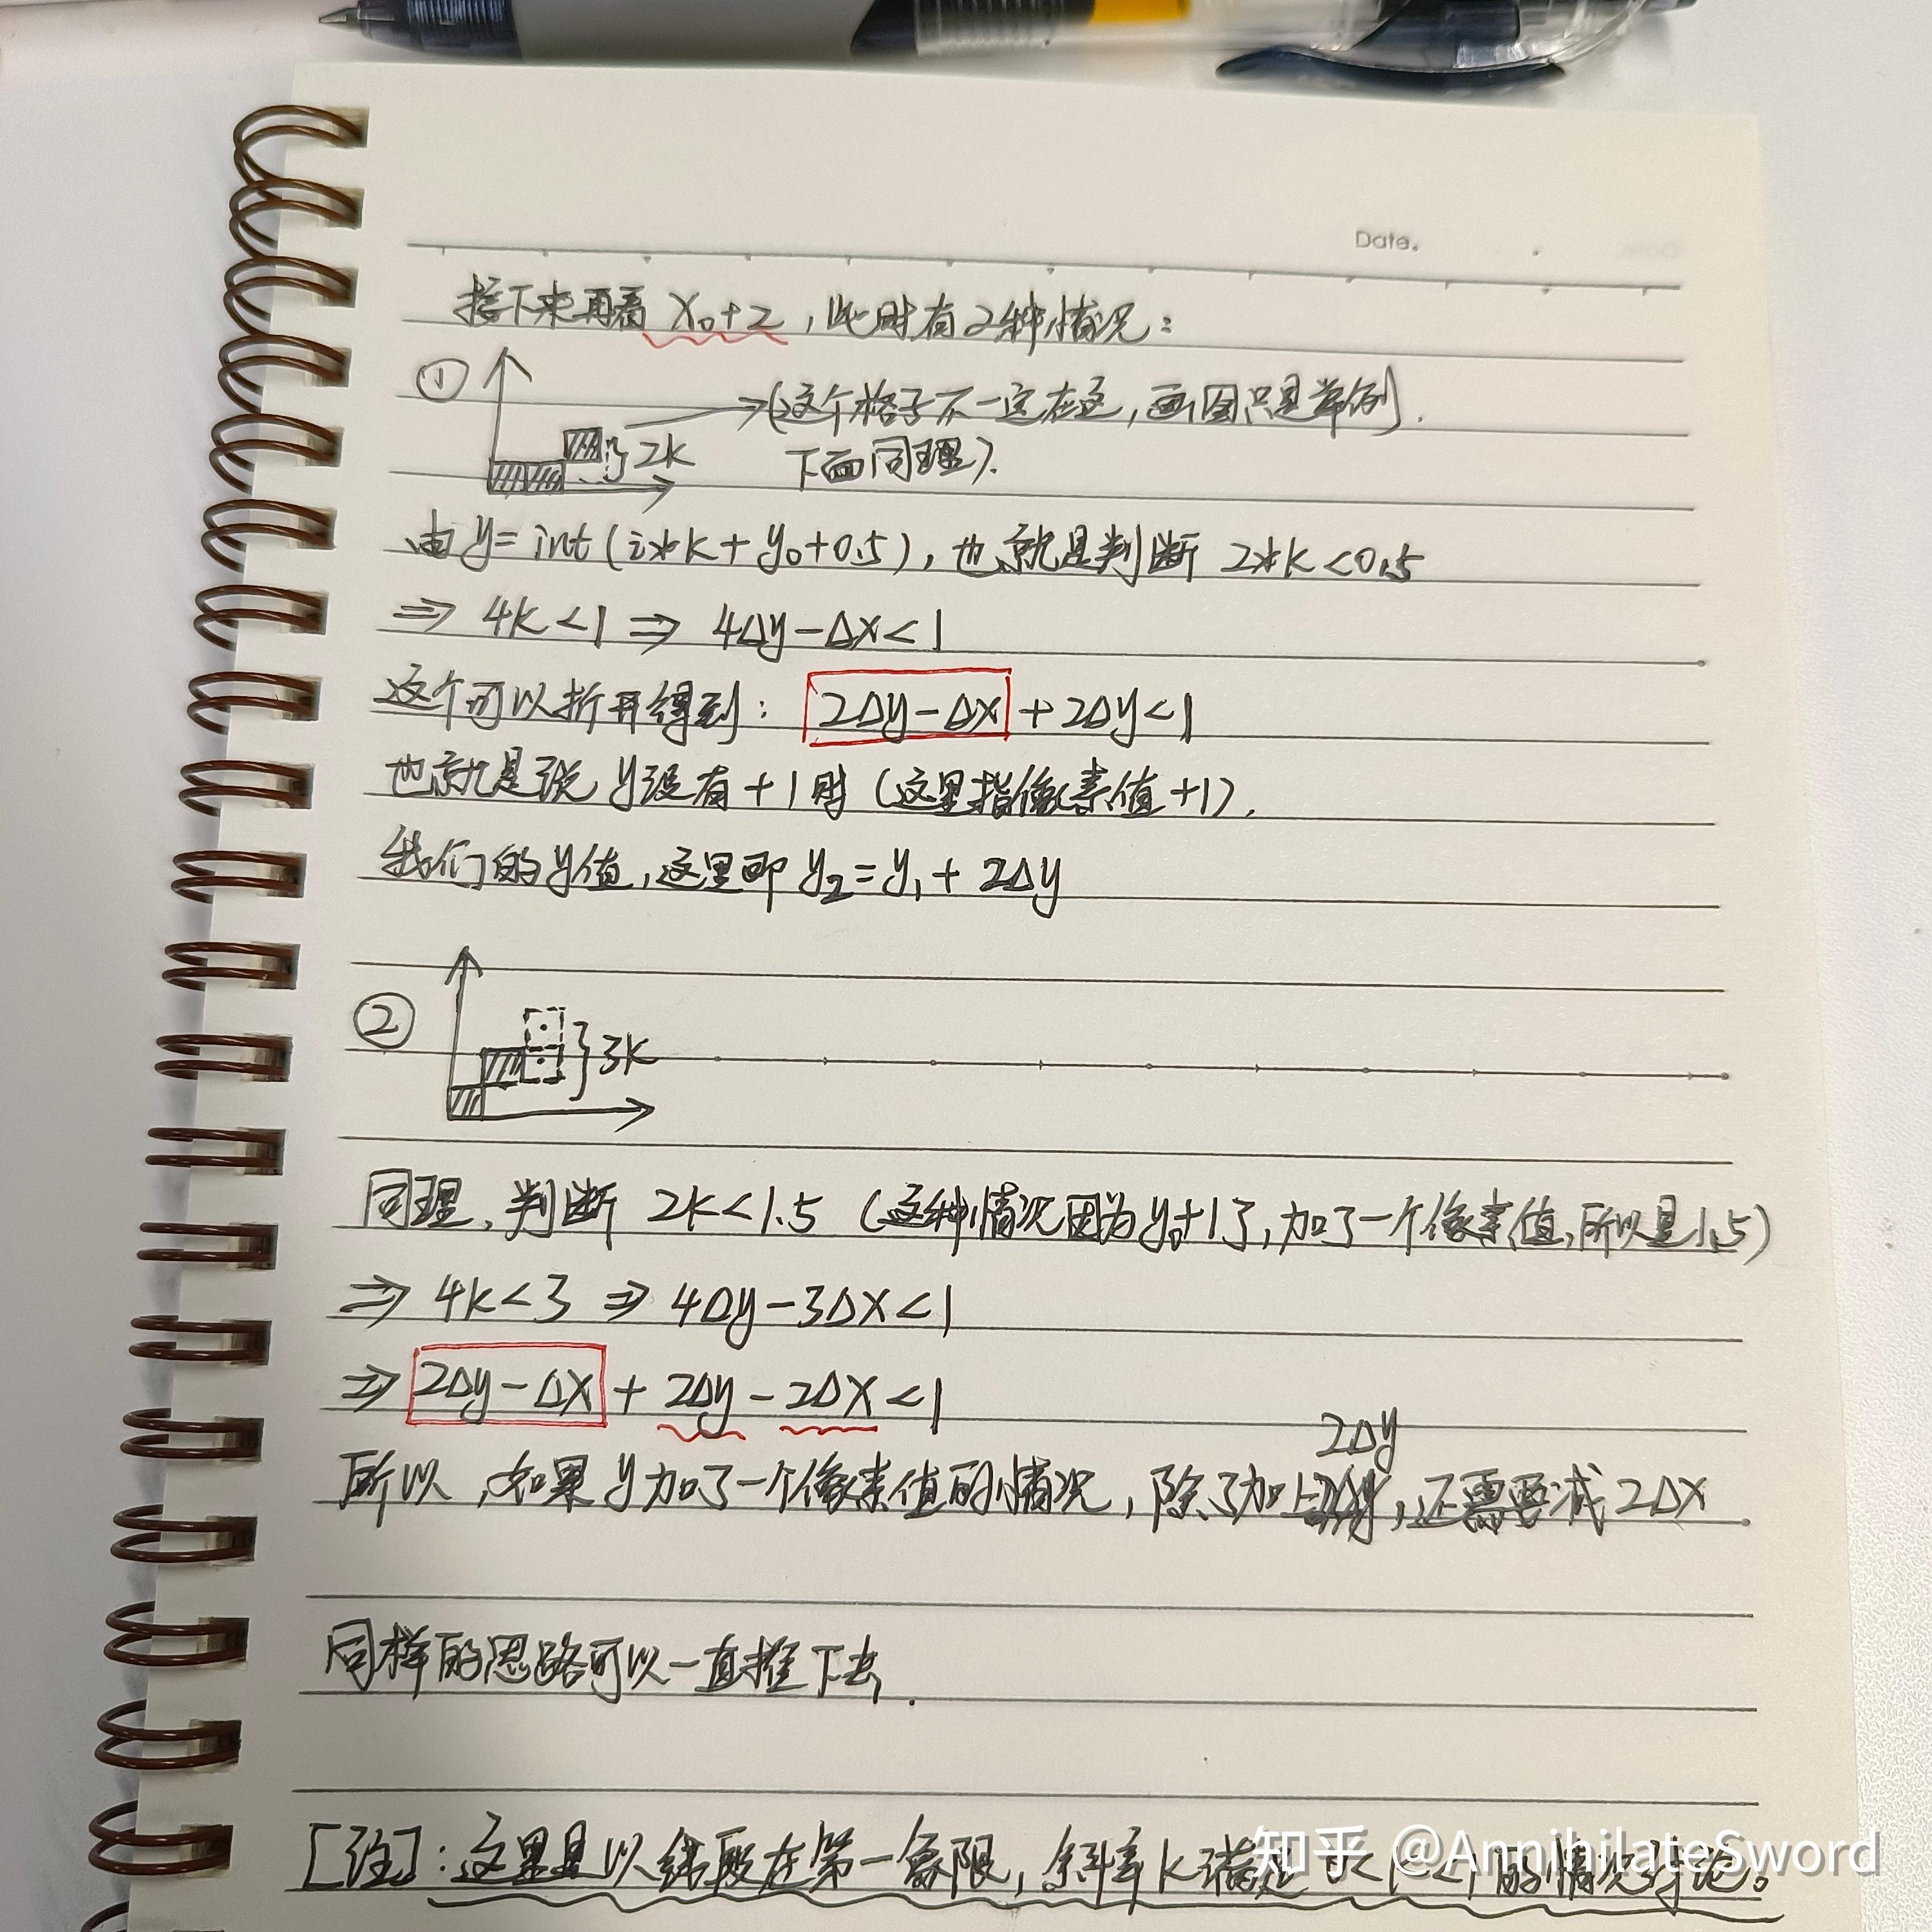 Date.
接下来再看 x₀+2，此时有2种情况：
① →(这个格子不一定在这，画图只是举例.
2k 下面同理).
由 y=int(i*k+y₀+0.5)，也就是判断 2*k<0.5
⇒ 4k<1 ⇒ 4Δy-Δx<1
这个可以拆开得到： 2Δy-Δx + 2Δy<1
也就是说 y没有+1时 (这里指像素值+1).
我们的y值，这里即 y₂=y₁+2Δy
② 3k
同理，判断 2k<1.5 (这种情况因为y₀+1了，加了一个像素值，所以是1.5)
⇒ 4k<3 ⇒ 4Δy-3Δx<1
⇒ 2Δy-Δx + 2Δy-2Δx<1
2Δy
所以，如果y加了一个像素值的情况，除了加上，还需要减2Δx
同样的思路可以一直推下去.
[注]：这里是以线段在第一象限，斜率k满足 0<k<1的情况讨论。
知乎 @AnnihilateSword